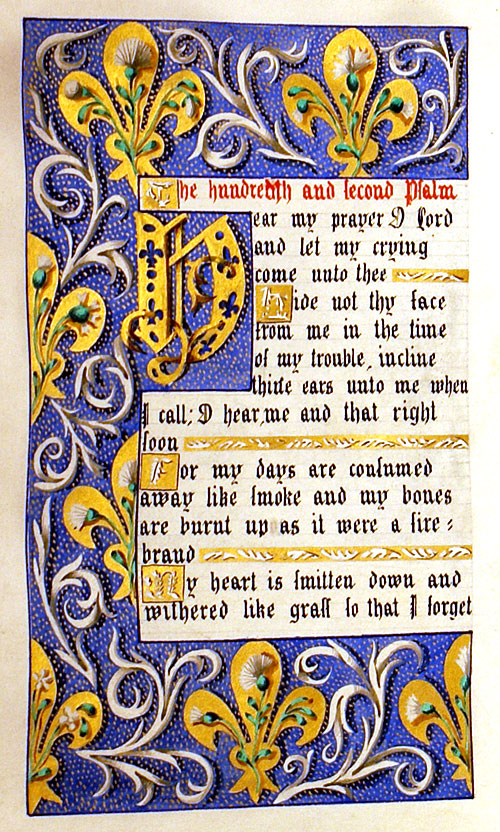 The hundredth and second Psalm
Hear my prayer O Lord
and let my crying
come unto thee
Hide not thy face
from me in the time
of my trouble, incline
thine ears unto me when
I call; O hear me and that right
soon
For my days are consumed
away like smoke and my bones
are burnt up as it were a fire-
brand
My heart is smitten down and
withered like grass so that I forget